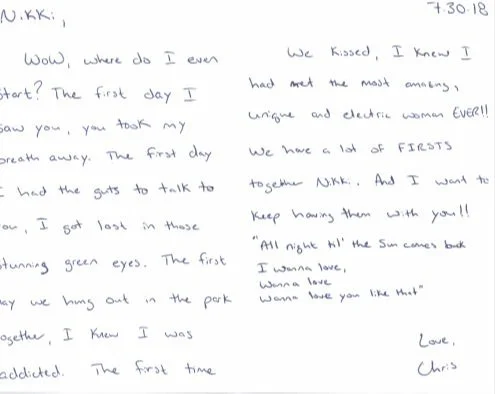 Nikki,
WoW, where do I even
start? The first day I
saw you, you took my
breath away. The first day
I had the guts to talk to
you, I got lost in those
stunning green eyes. The first
day we hung out in the park
together, I knew I was
addicted. The first time
7.30.18
We kissed, I knew I
had met the most amazing,
unique and electric woman EVER!!
We have a lot of FIRSTS
together Nikki. And I want to
keep having them with you!!
"All night til' the sun comes back
I wanna love,
Wanna love
Wanna love you like that"
Love,
Chris